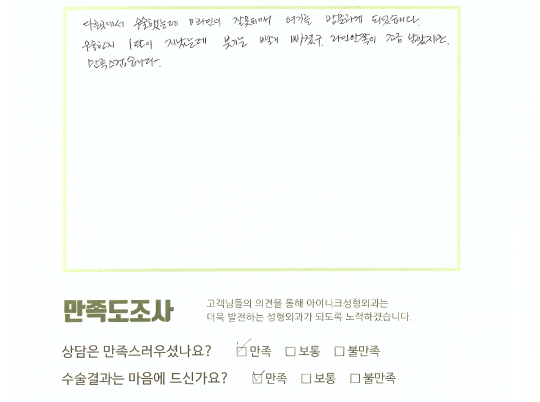 다른곳에서 수술했는데 라인이 잘못되서 여기를 방문하게 되었습니다.
수술한지 1달이 지났는데 붓기는 빨리 빠졌구, 라인안쪽이 조금 남았지만,
만족스럽습니다.
만족도조사
고객님들의 의견을 통해 아이니크성형외과는
더욱 발전하는 성형외과가 되도록 노력하겠습니다.
상담은 만족스러우셨나요? ☑만족 □보통 □불만족
수술결과는 마음에 드신가요? ☑만족 □보통 □불만족